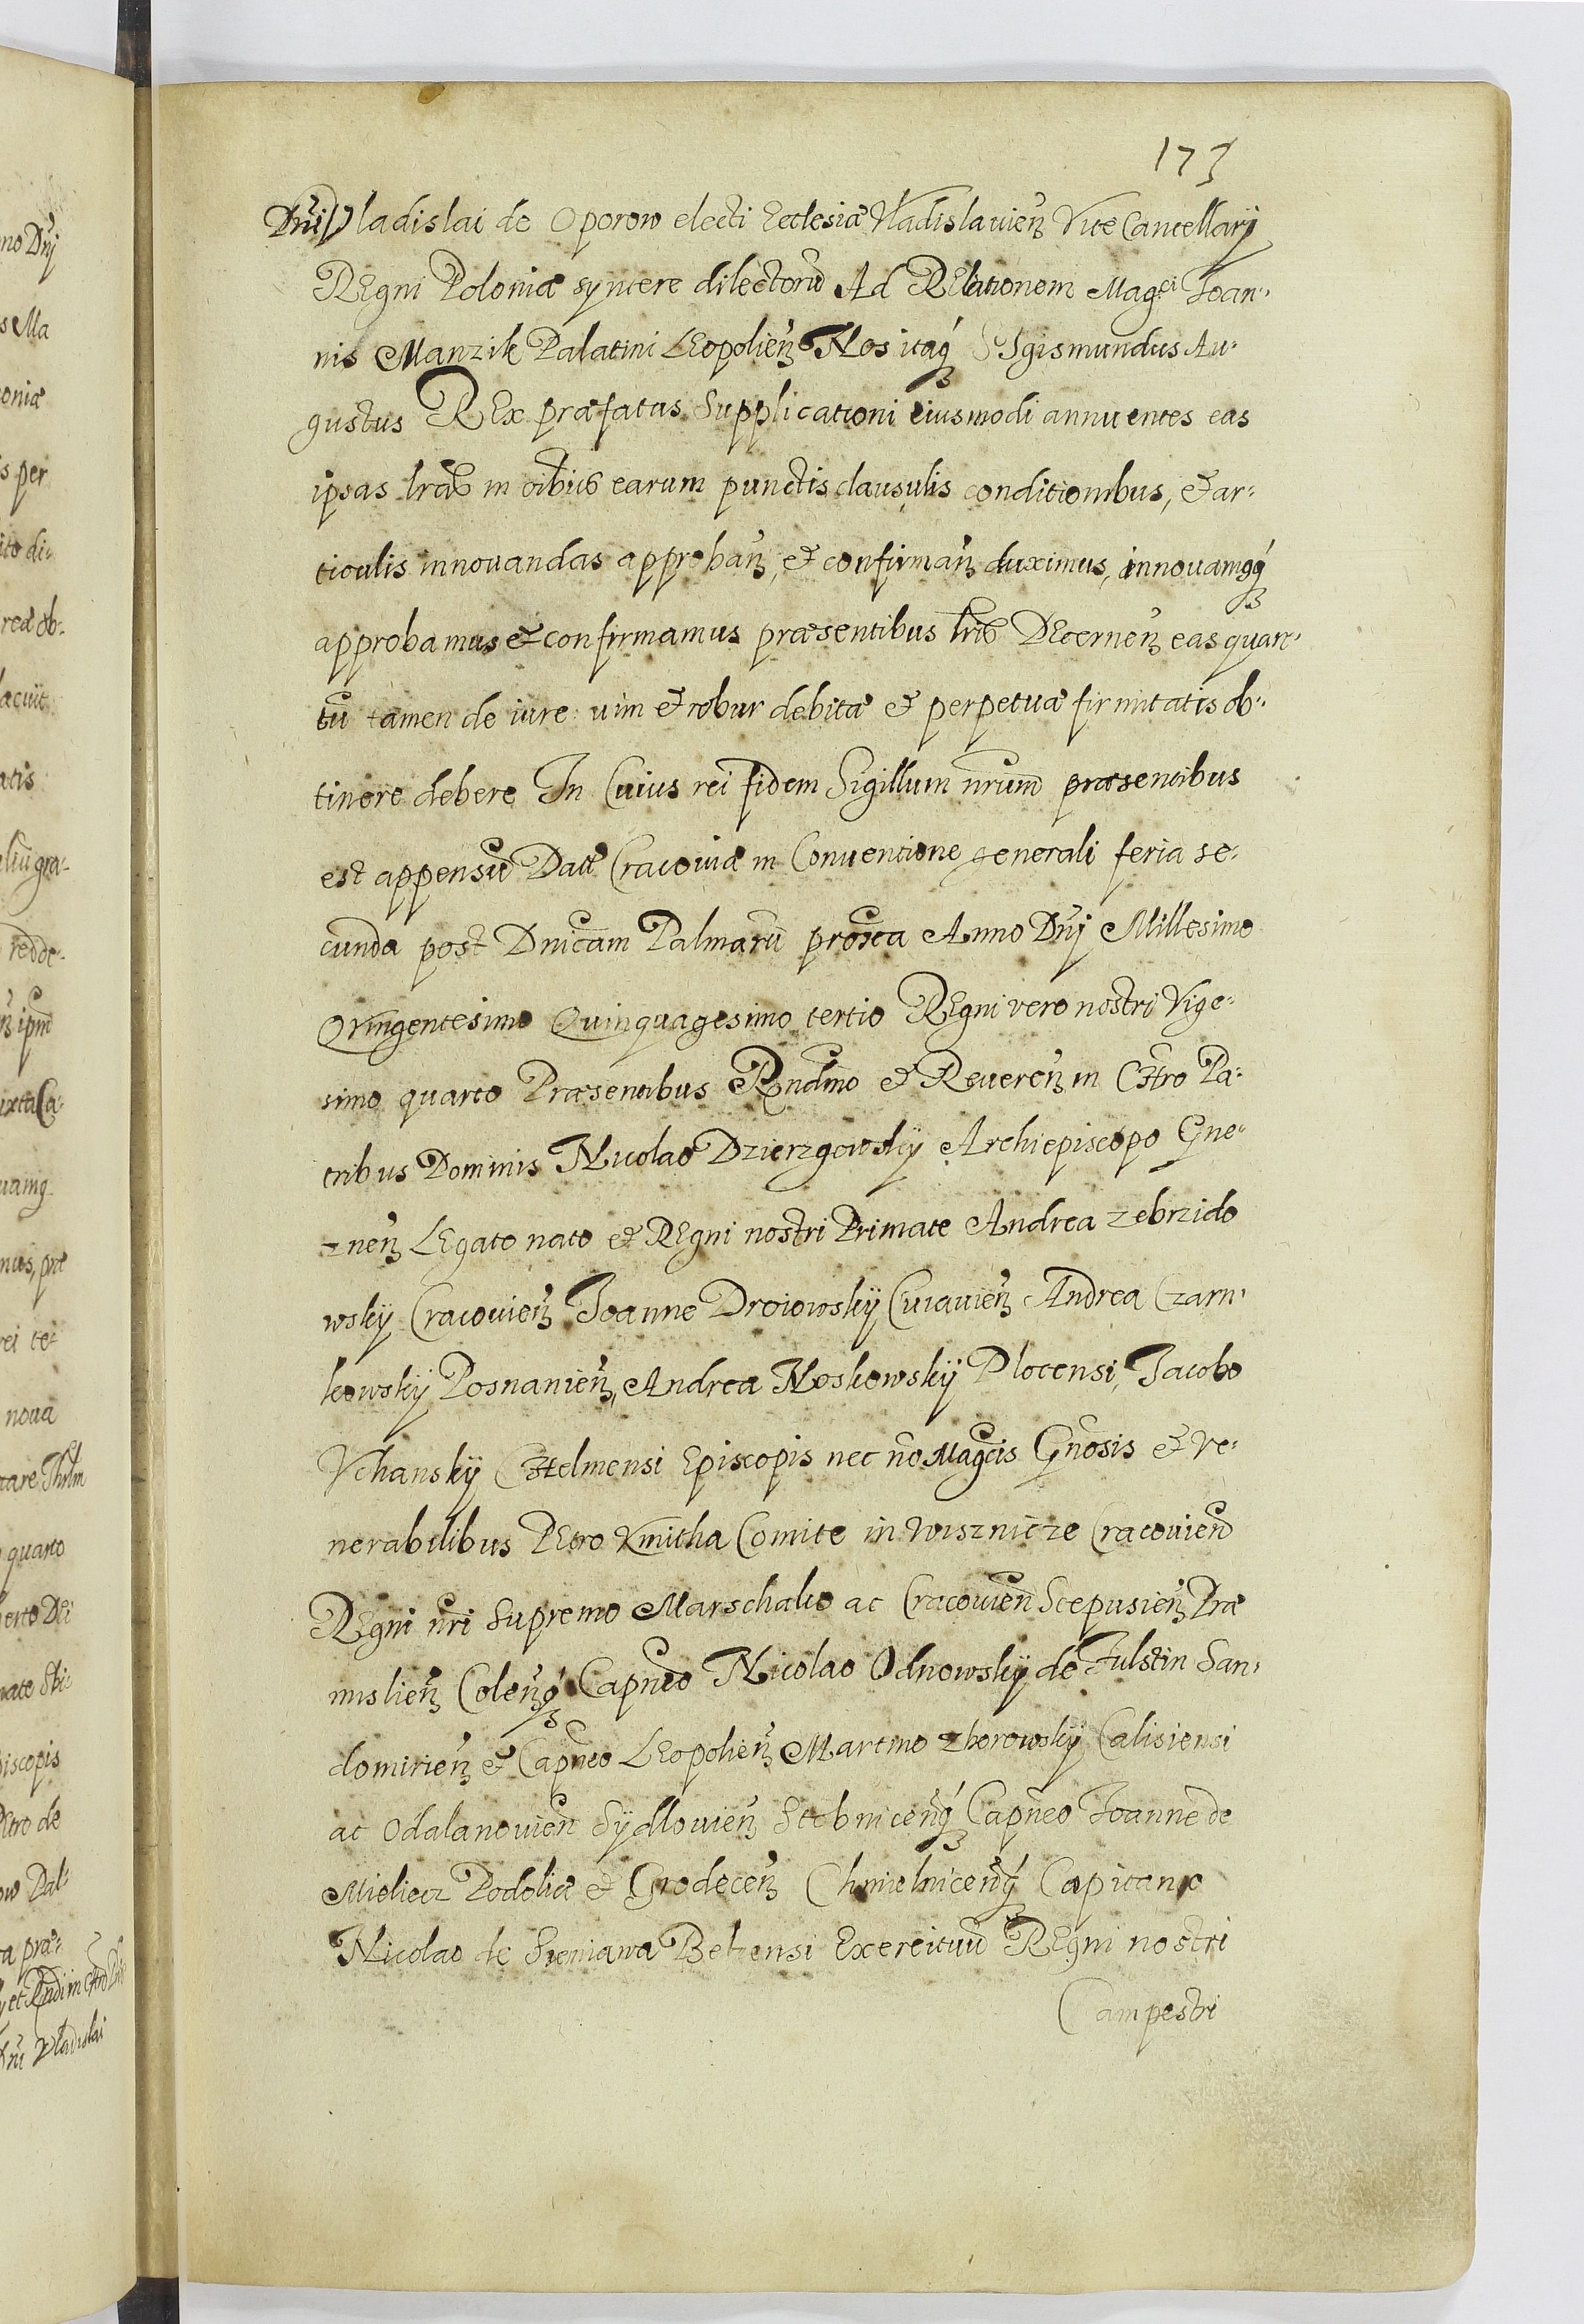 173
Dni Vladislai de Oporow electi Ecclesiæ Vladislauien̄ Vice Cancellarij
REgni Poloniæ syncere dilectorū Ad RElationem Magci Joan-
nis Manzik Palatini LEopolien̄ Nos itaq́ SIgismundus Au-
gustus REx præfatus Supplicationi eiusmodi annuentes eas
ipsas lrās in oībus earum punctis clausulis conditionibus, et ar-
ticulis innouandas approban̄, et confirman̄ duximus, innouamq́
approbamus et confirmamus præsentibus lrīs DEcernen̄ eas quan-
tū tamen de iure uim et robur debitæ et perpetuæ firmitatis ob-
tinere debere In Cuius rei fidem Sigillum nrūm præsentibus
est appensū Datt Cracouiæ in Conuentione generali feria se-
cunda post Dnicam Palmarū proxa Anno Dnj Millesimo
Qvingentesimo Quinquagesimo tertio REgni vero nostri Vige-
simo quarto Præsentibus Rndmo et Reueren̄ in Chro Pa-
tribus Dominis Nicolao Dzierzgowskÿ Archiepiscopo Gne-
znen̄ LEgato nato et REgni nostri Primate Andrea zebrzido
wskÿ Cracouien̄ Joanne Droiowskÿ Cuiauien̄ Andrea Czarn-
kowskÿ Posnanien̄, Andrea Noskowskÿ Plocensi, Jacobo
Vchanskÿ Chelmensi Episcopis nec nō Magcis Gnōsis et ve-
nerabilibus PEtro Kmitha Comite in Wisznicze Cracouien̄
REgni nri Supremo Marschalco ac Cracouien̄ Scepusien̄ Præ
mislien̄ Colen̄q́ Capneo Nicolao Odnowskÿ de Fulstin San-
domirien̄ et Capneo LEopolien̄ Martino zborowskÿ Calisiensi
ac Odalanouien̄ Sÿdlouien̄ Stobnicen̄q́ Capneo Joanne de
Mieliecz Podoliæ et Grodecen̄ Chmielnicen̄q́ Capitaneo
Nicolao de Sieniawa Belzensi Exercituū REgni nostri
Campestri